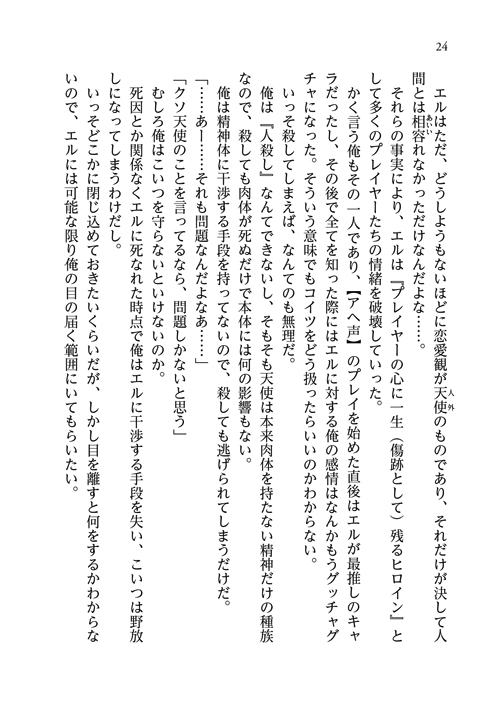 24
エルはただ、どうしようもないほどに恋愛観が天使のものであり、それだけが決して人
人外
間とは相容れなかっただけなんだよな……。
あいい
それらの事実により、エルは『プレイヤーの心に一生（傷跡として）残るヒロイン』と
して多くのプレイヤーたちの情緒を破壊していった。
かく言う俺もその一人であり、【アヘ声】のプレイを始めた直後はエルが最推しのキャ
ラだったし、その後で全てを知った際にはエルに対する俺の感情はなんかもうグッチャグ
チャになった。そういう意味でもコイツをどう扱ったらいいのかわからない。
いっそ殺してしまえば、なんてのも無理だ。
俺は『人殺し』なんてできないし、そもそも天使は本来肉体を持たない精神だけの種族
なので、殺しても肉体が死ぬだけで本体には何の影響もない。
俺は精神体に干渉する手段を持ってないので、殺しても逃げられてしまうだけだ。
「……あー……それも問題なんだよなあ……」
「クソ天使のことを言ってるなら、問題しかないと思う」
むしろ俺はこいつを守らないといけないのか。
死因とか関係なくエルに死なれた時点で俺はエルに干渉する手段を失い、こいつは野放
しになってしまうわけだし。
いっそどこかに閉じ込めておきたいくらいだが、しかし目を離すと何をするかわからな
いので、エルには可能な限り俺の目の届く範囲にいてもらいたい。